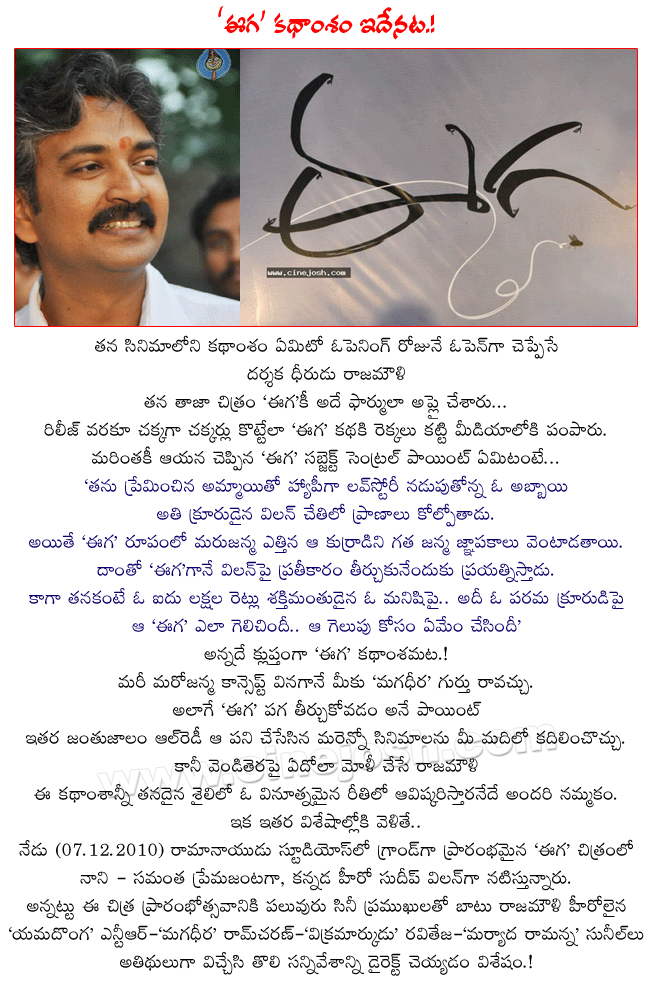 ‘ఈగ’ కథాంశం ఇదేనట.!
ఈగ
www.cinejosh.com
తన సినిమాలోని కథాంశం ఏమిటో ఓపెనింగ్ రోజునే ఓపెన్‌గా చెప్పేసే
దర్శక ధీరుడు రాజమౌళి
తన తాజా చిత్రం ‘ఈగ’కీ అదే ఫార్ములా అప్లై చేశారు...
రిలీజ్ వరకూ చక్కగా చక్కర్లు కొట్టేలా ‘ఈగ’ కథకి రెక్కలు కట్టి మీడియాలోకి పంపారు.
మరింతకీ ఆయన చెప్పిన ‘ఈగ’ సబ్జెక్ట్ సెంట్రల్ పాయింట్ ఏమిటంటే...
‘తను ప్రేమించిన అమ్మాయితో హ్యాపీగా లవ్‌స్టోరీ నడుపుతోన్న ఓ అబ్బాయి
అతి క్రూరుడైన విలన్ చేతిలో ప్రాణాలు కోల్పోతాడు.
అయితే ‘ఈగ’ రూపంలో మరుజన్మ ఎత్తిన ఆ కుర్రాడిని గత జన్మ జ్ఞాపకాలు వెంటాడతాయి.
దాంతో ‘ఈగ’గానే విలన్‌పై ప్రతీకారం తీర్చుకునేందుకు ప్రయత్నిస్తాడు.
కాగా తనకంటే ఓ ఐదు లక్షల రెట్లు శక్తిమంతుడైన ఓ మనిషిపై.. అదీ ఓ పరమ క్రూరుడిపై
ఆ ‘ఈగ’ ఎలా గెలిచిందీ.. ఆ గెలుపు కోసం ఏమేం చేసిందీ’
అన్నదే క్లుప్తంగా ‘ఈగ’ కథాంశమట.!
మరీ మరోజన్మ కాన్సెప్ట్ వినగానే మీకు ‘మగధీర’ గుర్తు రావచ్చు.
అలాగే ‘ఈగ’ పగ తీర్చుకోవడం అనే పాయింట్
ఇతర జంతుజాలం ఆల్‌రెడీ ఆ పని చేసేసిన మరెన్నో సినిమాలను మీ మదిలో కదిలించొచ్చు.
కానీ వెండితెరపై ఏదోలా మోళీ చేసే రాజమౌళి
www.cinejosh.com
ఈ కథాంశాన్నీ తనదైన శైలిలో ఓ వినూత్నమైన రీతిలో ఆవిష్కరిస్తారనేదే అందరి నమ్మకం.
ఇక ఇతర విశేషాల్లోకి వెళితే..
నేడు (07.12.2010) రామానాయుడు స్టూడియోస్‌లో గ్రాండ్‌గా ప్రారంభమైన ‘ఈగ’ చిత్రంలో
నాని – సమంత ప్రేమజంటగా, కన్నడ హీరో సుదీప్ విలన్‌గా నటిస్తున్నారు.
అన్నట్టు ఈ చిత్ర ప్రారంభోత్సవానికి పలువురు సినీ ప్రముఖులతో బాటు రాజమౌళి హీరోలైన
‘యమదొంగ’ ఎన్టీఆర్–‘మగధీర’ రామ్‌చరణ్–‘విక్రమార్కుడు’ రవితేజ–‘మర్యాద రామన్న’ సునీల్‌లు
అతిథులుగా విచ్చేసి తొలి సన్నివేశాన్ని డైరెక్ట్ చెయ్యడం విశేషం.!